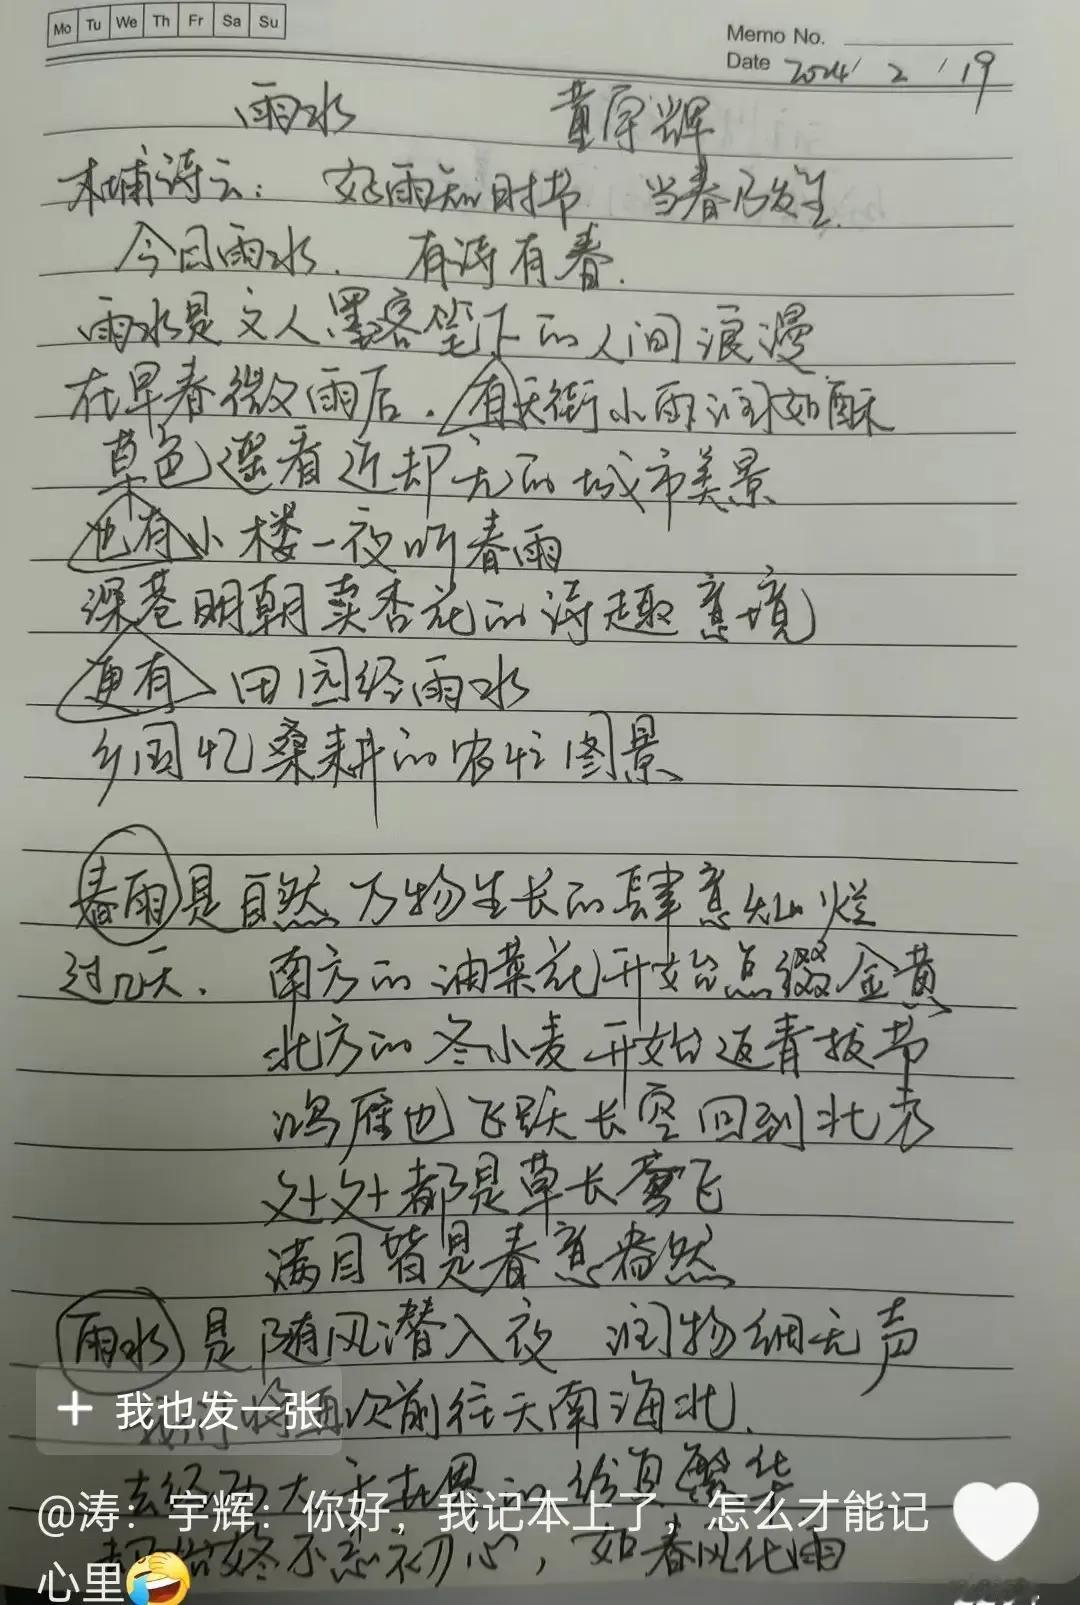 Mo Tu We Th Fr Sa Su
Memo No.
Date 2024/2/19
雨水 董宇辉
杜甫诗云：好雨知时节 当春乃发生
今日雨水．有诗有春．
雨水是文人墨客笔下的人间浪漫
在早春微雨后．有天街小雨润如酥
草色遥看近却无的城市美景
也有小楼一夜听春雨
深巷明朝卖杏花的诗趣意境
更有田园经雨水
乡国忆桑耕的农忙图景
春雨是自然万物生长的肆意灿烂
过几天．南方的油菜花开始点缀金黄
北方的冬小麦开始返青拔节
鸿雁也飞跃长空回到北方
处处都是草长莺飞
满目皆是春意盎然
雨水是随风潜入夜 润物细无声
我们将再次前往天南海北．
+ 我也发一张
去经历大千世界的纷具繁华
@涛：宇辉：你好，我记本上了，怎么才能记
心里🤣
始终不忘初心，如春风化雨